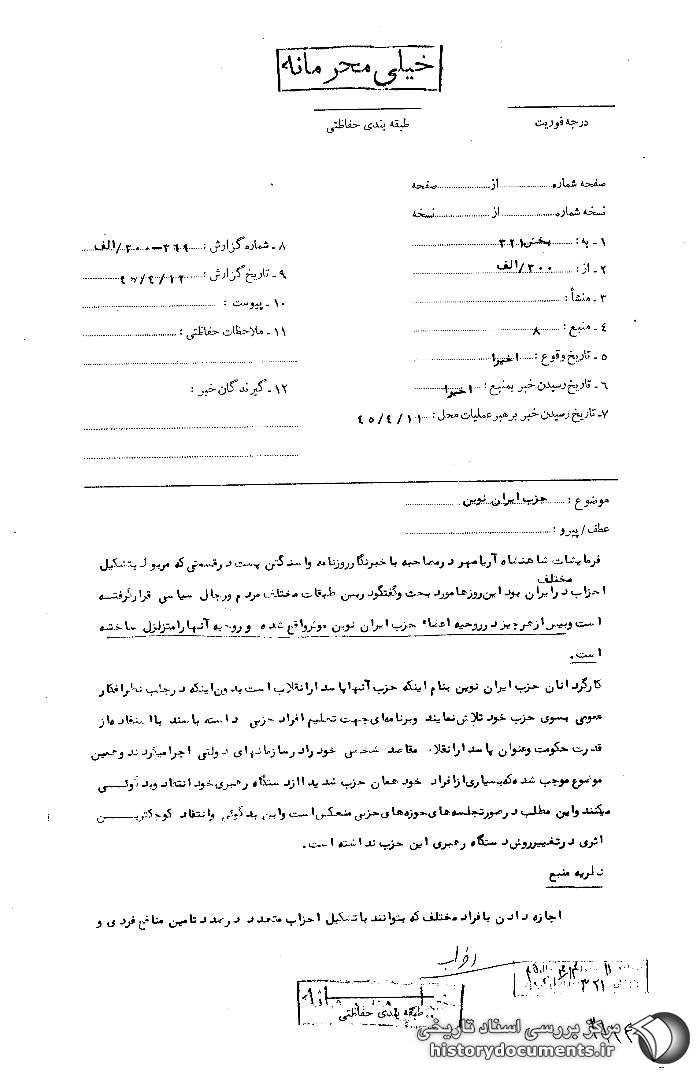 خیلی محرمانه
درجه فوریت
طبقه بندی حفاظتی
صفحه شماره ... از ... صفحه
نسخه شماره ... از ... نسخه
۱ـ به : بخش ۳۲۱
۲ـ از : ۳۰۰/الف
۳ـ منشأ :
۴ـ منبع : ۸
۵ـ تاریخ وقوع : اخیرا
۶ـ تاریخ رسیدن خبر بمنبع : اخیرا
۷ـ تاریخ رسیدن خبر برهبر عملیات محل : ۴۵/۴/۱۱
۸ـ شماره گزارش : ۳۰۰-۲۶۹/الف
۹ـ تاریخ گزارش : ۴۵/۴/۱۲
۱۰ـ پیوست :
۱۱ـ ملاحظات حفاظتی :
۱۲ـ گیرندگان خبر :
موضوع : حزب ایران نوین
عطف/پیرو :
فرمایشات شاهنشاه آریامهر در مصاحبه با خبرنگار روزنامه واشنگتن پست در قسمتی که مربوط بتشکیل
احزاب مختلف در ایران بود این روزها مورد بحث و گفتگو در بین طبقات مختلف مردم و رجال سیاسی قرار گرفته
است و بیش از هر چیز در روحیه اعضاء حزب ایران نوین موثر واقع شده و روحیه آنها را متزلزل ساخته
است.
کارگردانان حزب ایران نوین بنام اینکه حزب آنها پاسدار انقلاب است بدون اینکه در جلب نظر افکار
عمومی بسوی حزب خود تلاش نمایند و برنامه ای جهت تعلیم افراد حزبی داشته باشند با استفاده از
قدرت حکومت و عنوان پاسدار انقلاب مقاصد شخصی خود را در سازمانهای دولتی اجرا میکردند و همین
موضوع موجب شده که بسیاری از افراد خود همان حزب شدیدا از دستگاه رهبری خود انتقاد و بدگوئی
میکنند و این مطلب در صورتجلسه های حوزه های حزبی منعکس است و این بدگوئی و انتقاد کوچکترین
اثری در تغییر روش دستگاه رهبری این حزب نداشته است.
نظریه منبع
اجازه دادن بافراد مختلف که بتوانند با تشکیل احزاب متعدد در صدد تامین منافع فردی و
احزاب
۳۲۱
طبقه بندی حفاظتی
مرکز بررسی اسناد تاریخی
historydocuments.ir